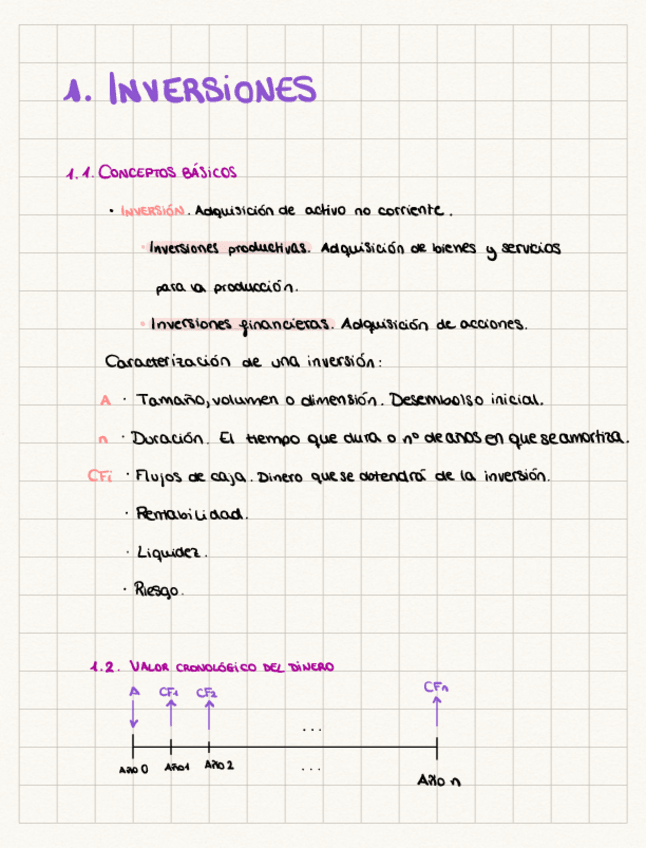 1. INVERSIONES
1.1. CONCEPTOS BÁSICOS
· INVERSIÓN. Adquisición de activo no corriente.
· Inversiones productivas. Adquisición de bienes y servicios
para la producción.
· Inversiones financieras. Adquisición de acciones.
Caracterización de una inversión:
A · Tamaño, volumen o dimensión. Desembolso inicial.
n · Duración. El tiempo que dura o nº de anos en que se amortiza.
CFi · Flujos de caja. Dinero que se obtendrá de la inversión.
· Rentabilidad.
· Liquidez.
· Riesgo.
1.2. VALOR CRONOLÓGICO DEL DINERO
A CF1 CF2 CFn
...
Año 0 Año 1 Año 2 ... Año n